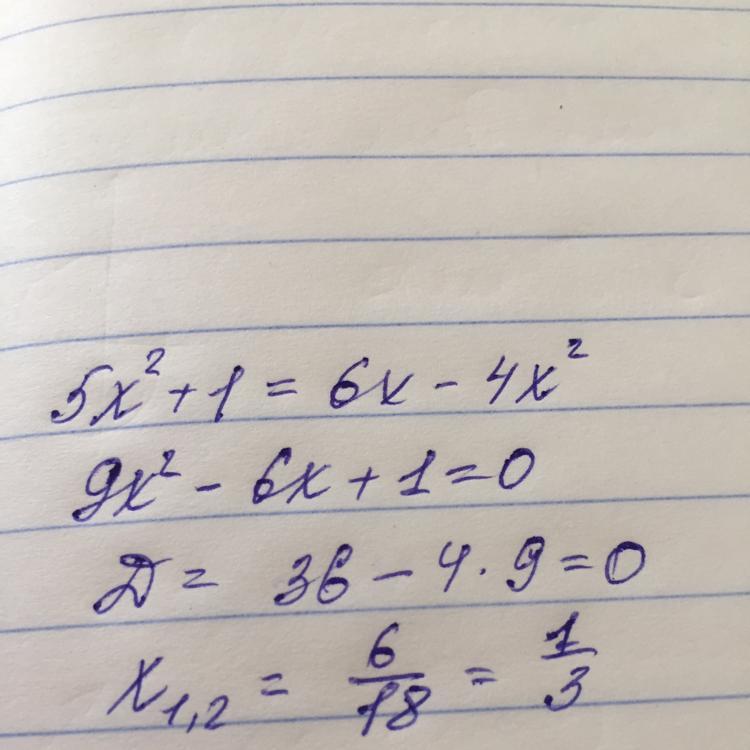 5x² + 1 = 6x - 4x²
9x² - 6x + 1 = 0
D = 36 - 4 · 9 = 0
x₁,₂ = 6/18 = 1/3